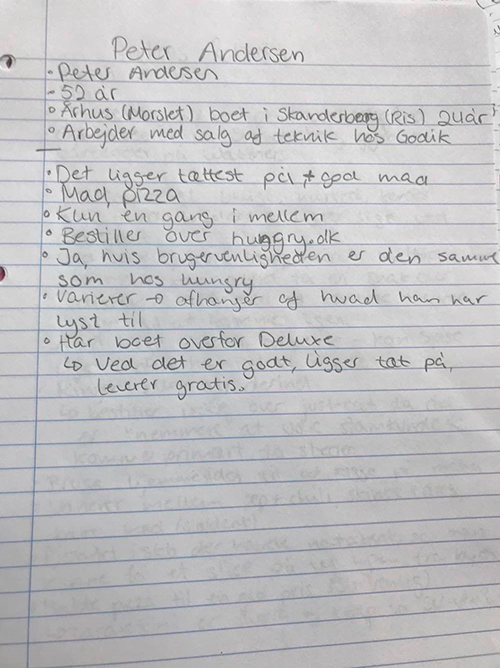 Peter Andersen
• Peter Andersen
- 52 år
• Århus (Morslet) boet i Skanderberg (Ris) 24år
• Arbejder med salg af teknik hos Godik
• Det ligger tættest på, + god mad
• Mad, pizza
• Kun en gang i mellem
• Bestiller over hungry.dk
• Ja, hvis brugervenligheden er den samme
som hos hungry
• Varierer → afhænger af hvad han har
lyst til
• Har boet overfor Deluxe
↳ Ved det er godt, ligger tæt på,
leverer gratis.